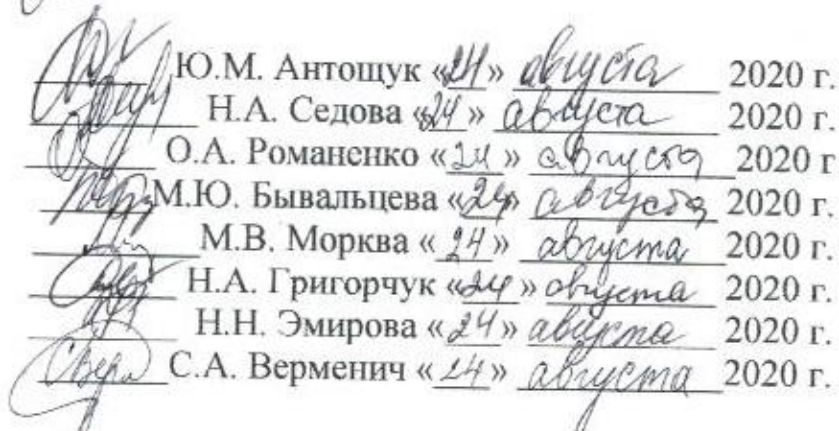 Ю.М. Антощук «24» августа 2020 г.
Н.А. Седова «24» августа 2020 г.
О.А. Романенко «24» августа 2020 г
М.Ю. Бывальцева «24» августа 2020 г.
М.В. Морква «24» августа 2020 г.
Н.А. Григорчук «24» августа 2020 г.
Н.Н. Эмирова «24» августа 2020 г.
С.А. Верменич «24» августа 2020 г.